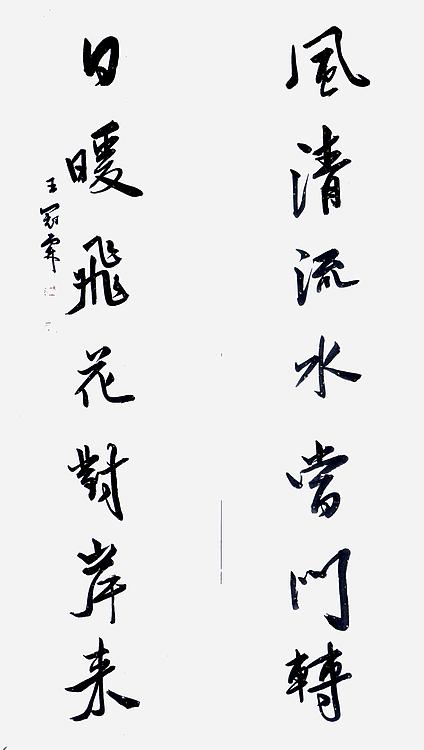 風清流水當門轉
日暖飛花對岸来
王冠霖